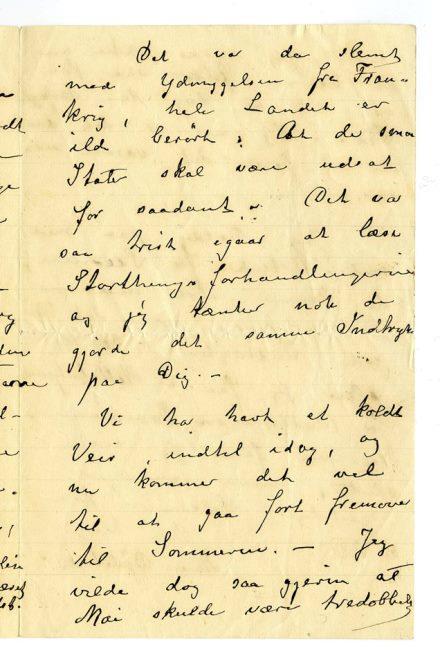 Det va da slemt
med Ydmygelsen fra Fran-
krig, hele Landet er
ilde berört. At de smaa
Stater skal være udsat
for saadant! Det va
saa trist igaar at læse
Storthingsforhandlingerne
og jeg tænker nok de
gjorde det samme Indtryk
paa Dig. -
Vi ha havt et koldt
Veir, indtil idag, og
nu kommer det vel
til at gaa fort fremover
til Sommeren. - Jeg
vilde dog saa gjerne at
Mai skulde være tredobbelt